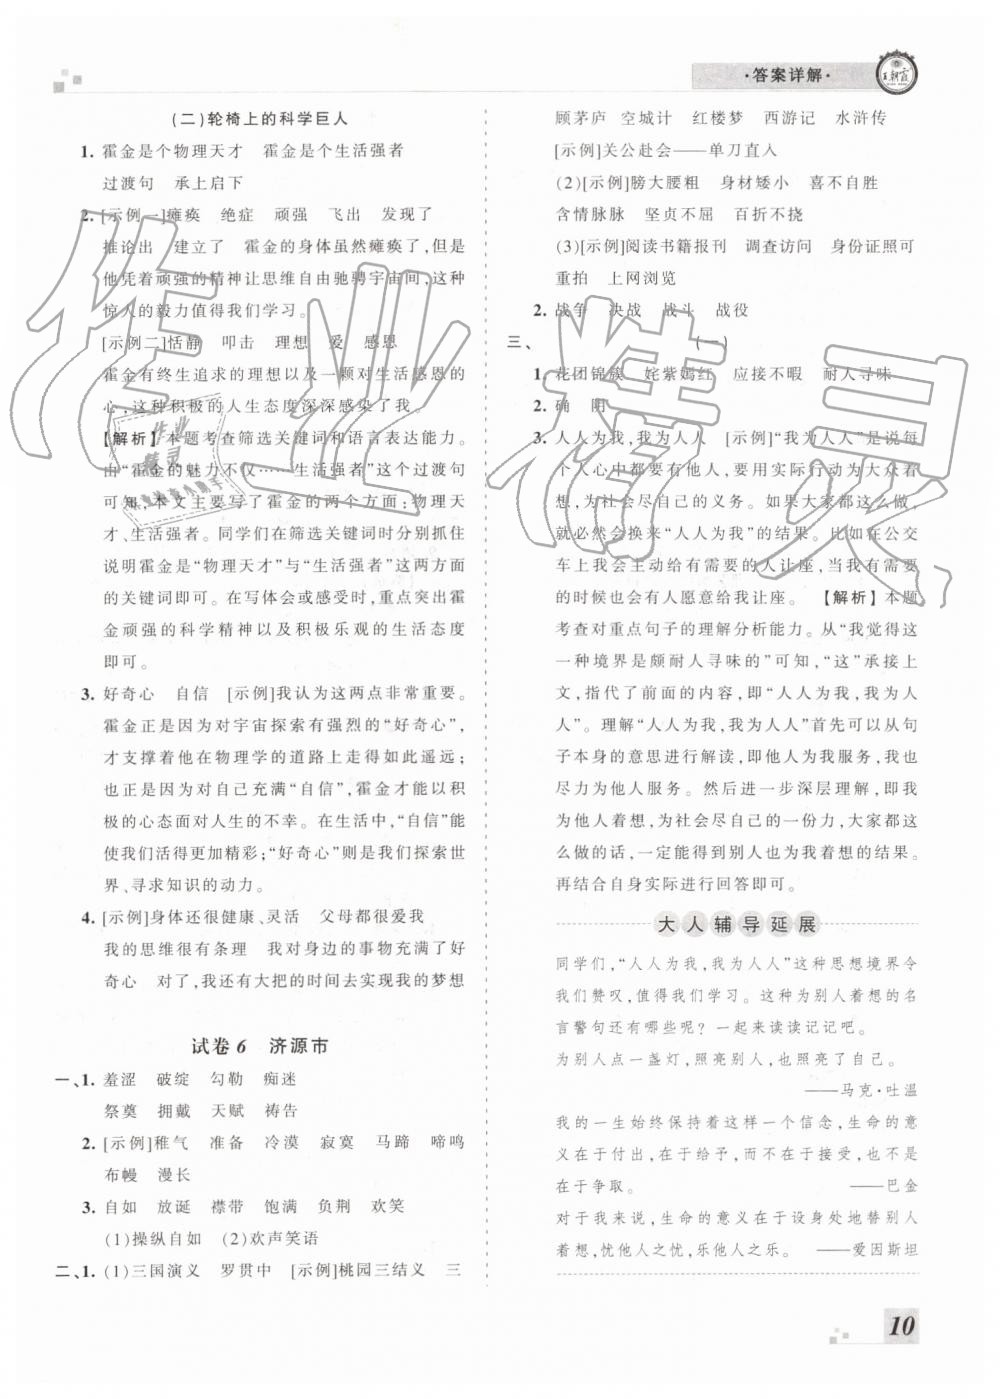 ·答案详解·
王朝霞
(二)轮椅上的科学巨人
1. 霍金是个物理天才　霍金是个生活强者
过渡句　承上启下
2. [示例一]瘫痪　绝症　顽强　飞出　发现了
推论出　建立了　霍金的身体虽然瘫痪了,但是
他凭着顽强的精神让思维自由驰骋宇宙间,这种
惊人的毅力值得我们学习。
[示例二]恬静　叩击　理想　爱　感恩
霍金有终生追求的理想以及一颗对生活感恩的
心,这种积极的人生态度深深感染了我。
【解析】本题考查筛选关键词和语言表达能力。
由“霍金的魅力不仅……生活强者”这个过渡句
可知,本文主要写了霍金的两个方面:物理天
才、生活强者。同学们在筛选关键词时分别抓住
说明霍金是“物理天才”与“生活强者”这两方面
的关键词即可。在写体会或感受时,重点突出霍
金顽强的科学精神以及积极乐观的生活态度
即可。
3. 好奇心　自信　[示例]我认为这两点非常重要。
霍金正是因为对宇宙探索有强烈的“好奇心”,
才支撑着他在物理学的道路上走得如此遥远;
也正是因为对自己充满“自信”,霍金才能以积
极的心态面对人生的不幸。在生活中,“自信”能
使我们活得更加精彩;“好奇心”则是我们探索世
界、寻求知识的动力。
4. [示例]身体还很健康、灵活　父母都很爱我
我的思维很有条理　我对身边的事物充满了好
奇心　对了,我还有大把的时间去实现我的梦想
试卷6　济源市
一、1. 羞涩　破绽　勾勒　痴迷
祭奠　拥戴　天赋　祷告
2. [示例]稚气　准备　冷漠　寂寞　马蹄　啼鸣
布幔　漫长
3. 自如　放诞　襟带　饱满　负荆　欢笑
(1)操纵自如　(2)欢声笑语
二、1. (1)三国演义　罗贯中　[示例]桃园三结义　三
顾茅庐　空城计　红楼梦　西游记　水浒传
[示例]关公赴会——单刀直入
(2)[示例]膀大腰粗　身材矮小　喜不自胜
含情脉脉　坚贞不屈　百折不挠
(3)[示例]阅读书籍报刊　调查访问　身份证照可
重拍　上网浏览
2. 战争　决战　战斗　战役
三、(一)
1. 花团锦簇　姹紫嫣红　应接不暇　耐人寻味
2. 确　阴
3. 人人为我,我为人人　[示例]“我为人人”是说每
个人心中都要有他人,要用实际行动为大众着
想,为社会尽自己的义务。如果大家都这么做,
就必然会换来“人人为我”的结果。比如在公交
车上我会主动给有需要的人让座,当我有需要
的时候也会有人愿意给我让座。　【解析】本题
考查对重点句子的理解分析能力。从“我觉得这
一种境界是颇耐人寻味的”可知,“这”承接上
文,指代了前面的内容,即“人人为我,我为人
人”。理解“人人为我,我为人人”首先可以从句
子本身的意思进行解读,即他人为我服务,我也
尽力为他人服务。然后进一步深层理解,即我
为他人着想,为社会尽自己的一份力,大家都这
么做的话,一定能得到别人也为我着想的结果。
再结合自身实际进行回答即可。
大人辅导延展
同学们,“人人为我,我为人人”这种思想境界令
我们赞叹,值得我们学习。这种为别人着想的名
言警句还有哪些呢?一起来读读记记吧。
为别人点一盏灯,照亮别人,也照亮了自己。
——马克·吐温
我的一生始终保持着这样一个信念,生命的意
义在于付出,在于给予,而不是在于接受,也不是
在于争取。　——巴金
对于我来说,生命的意义在于设身处地替别人
着想,忧他人之忧,乐他人之乐。　——爱因斯坦
10
作业精灵
作业
精灵